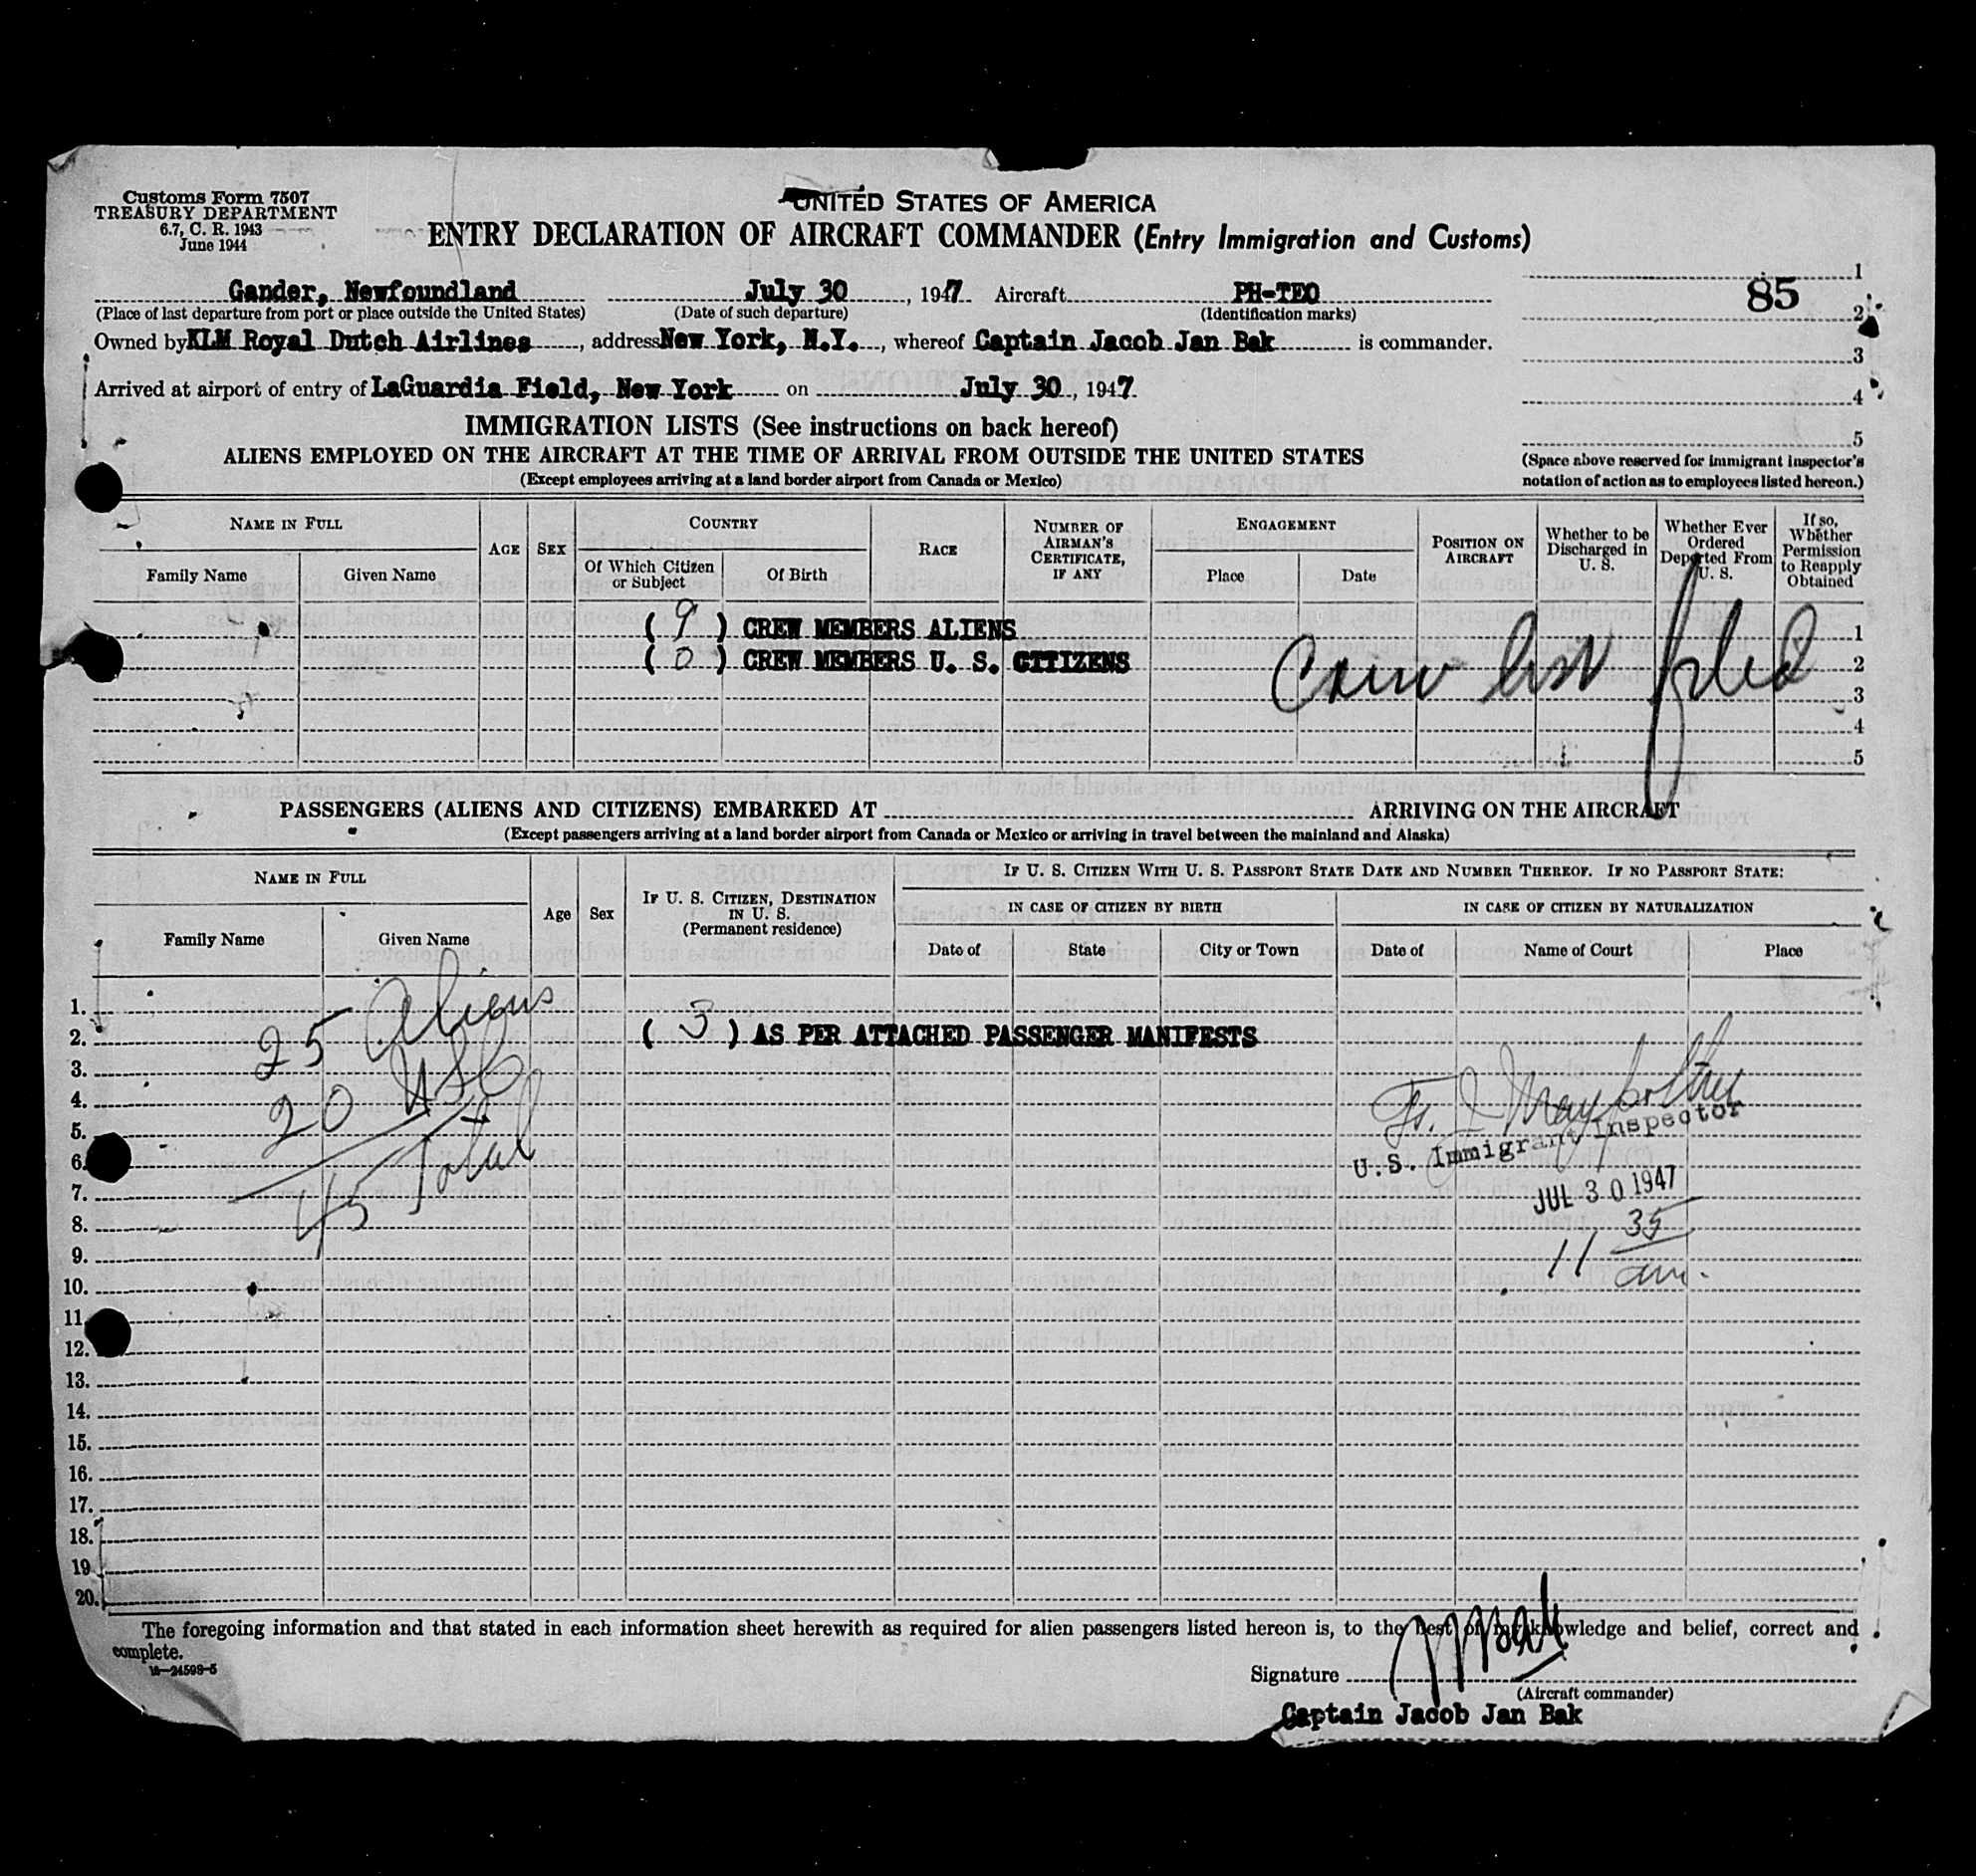 Customs Form 7507
TREASURY DEPARTMENT
6.7, C. R. 1943
June 1944
UNITED STATES OF AMERICA
ENTRY DECLARATION OF AIRCRAFT COMMANDER (Entry Immigration and Customs)
Gander, Newfoundland July 30, 1947. Aircraft PH-TEO
(Place of last departure from port or place outside the United States) (Date of such departure) (Identification marks)
Owned by KLM Royal Dutch Airlines, address New York, N.Y., whereof Captain Jacob Jan Bak is commander.
Arrived at airport of entry of LaGuardia Field, New York on July 30, 1947.
1
85
2
3
4
5
(Space above reserved for immigrant inspector's
notation of action as to employees listed hereon.)
IMMIGRATION LISTS (See instructions on back hereof)
ALIENS EMPLOYED ON THE AIRCRAFT AT THE TIME OF ARRIVAL FROM OUTSIDE THE UNITED STATES
(Except employees arriving at a land border airport from Canada or Mexico)
NAME IN FULL
Family Name Given Name
AGE
SEX
COUNTRY
Of Which Citizen or Subject
Of Birth
RACE
NUMBER OF AIRMAN'S CERTIFICATE, IF ANY
ENGAGEMENT
Place Date
POSITION ON AIRCRAFT
Whether to be Discharged in U. S.
Whether Ever Ordered Deported From U. S.
If so, Whether Permission to Reapply Obtained
( 9 ) CREW MEMBERS ALIENS 1
( 0 ) CREW MEMBERS U. S. CITIZENS 2
Crew list filed
3
4
5
PASSENGERS (ALIENS AND CITIZENS) EMBARKED AT ARRIVING ON THE AIRCRAFT
(Except passengers arriving at a land border airport from Canada or Mexico or arriving in travel between the mainland and Alaska)
NAME IN FULL
Family Name Given Name
Age
Sex
IF U. S. CITIZEN, DESTINATION IN U. S.
(Permanent residence)
IF U. S. CITIZEN WITH U. S. PASSPORT STATE DATE AND NUMBER THEREOF. IF NO PASSPORT STATE:
IN CASE OF CITIZEN BY BIRTH
IN CASE OF CITIZEN BY NATURALIZATION
Date of State City or Town Date of Name of Court Place
1.
25 Aliens
2. ( 3 ) AS PER ATTACHED PASSENGER MANIFESTS
3.
20 USC
4.
5.
U.S. Immigrant Inspector
6.
45 Total
7.
JUL 30 1947
8.
11 35 am.
9.
10.
11
12.
13.
14.
15.
16.
17.
18.
19
20.
The foregoing information and that stated in each information sheet herewith as required for alien passengers listed hereon is, to the best of my knowledge and belief, correct and
complete.
16—24598-5
Signature JJBak
(Aircraft commander)
Captain Jacob Jan Bak